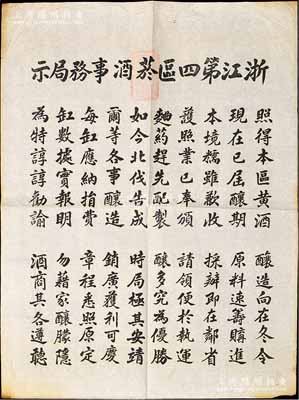 浙江第四區菸酒事務局示
照得本區黃酒 釀造向在冬令
現在已屆釀期 原料速籌購進
本境糯雖歉收 採辦即在鄰省
護照業已奉頒 請領便於執運
麯葯趕先配製 釀多究為優勝
如今北伐告成 時局極其安靖
爾等各事釀造 銷廣獲利可慶
每缸應納捐費 章程悉照原定
缸數據實報明 勿藉家釀朦隱
為特諄諄勸諭 酒商其各遵聽